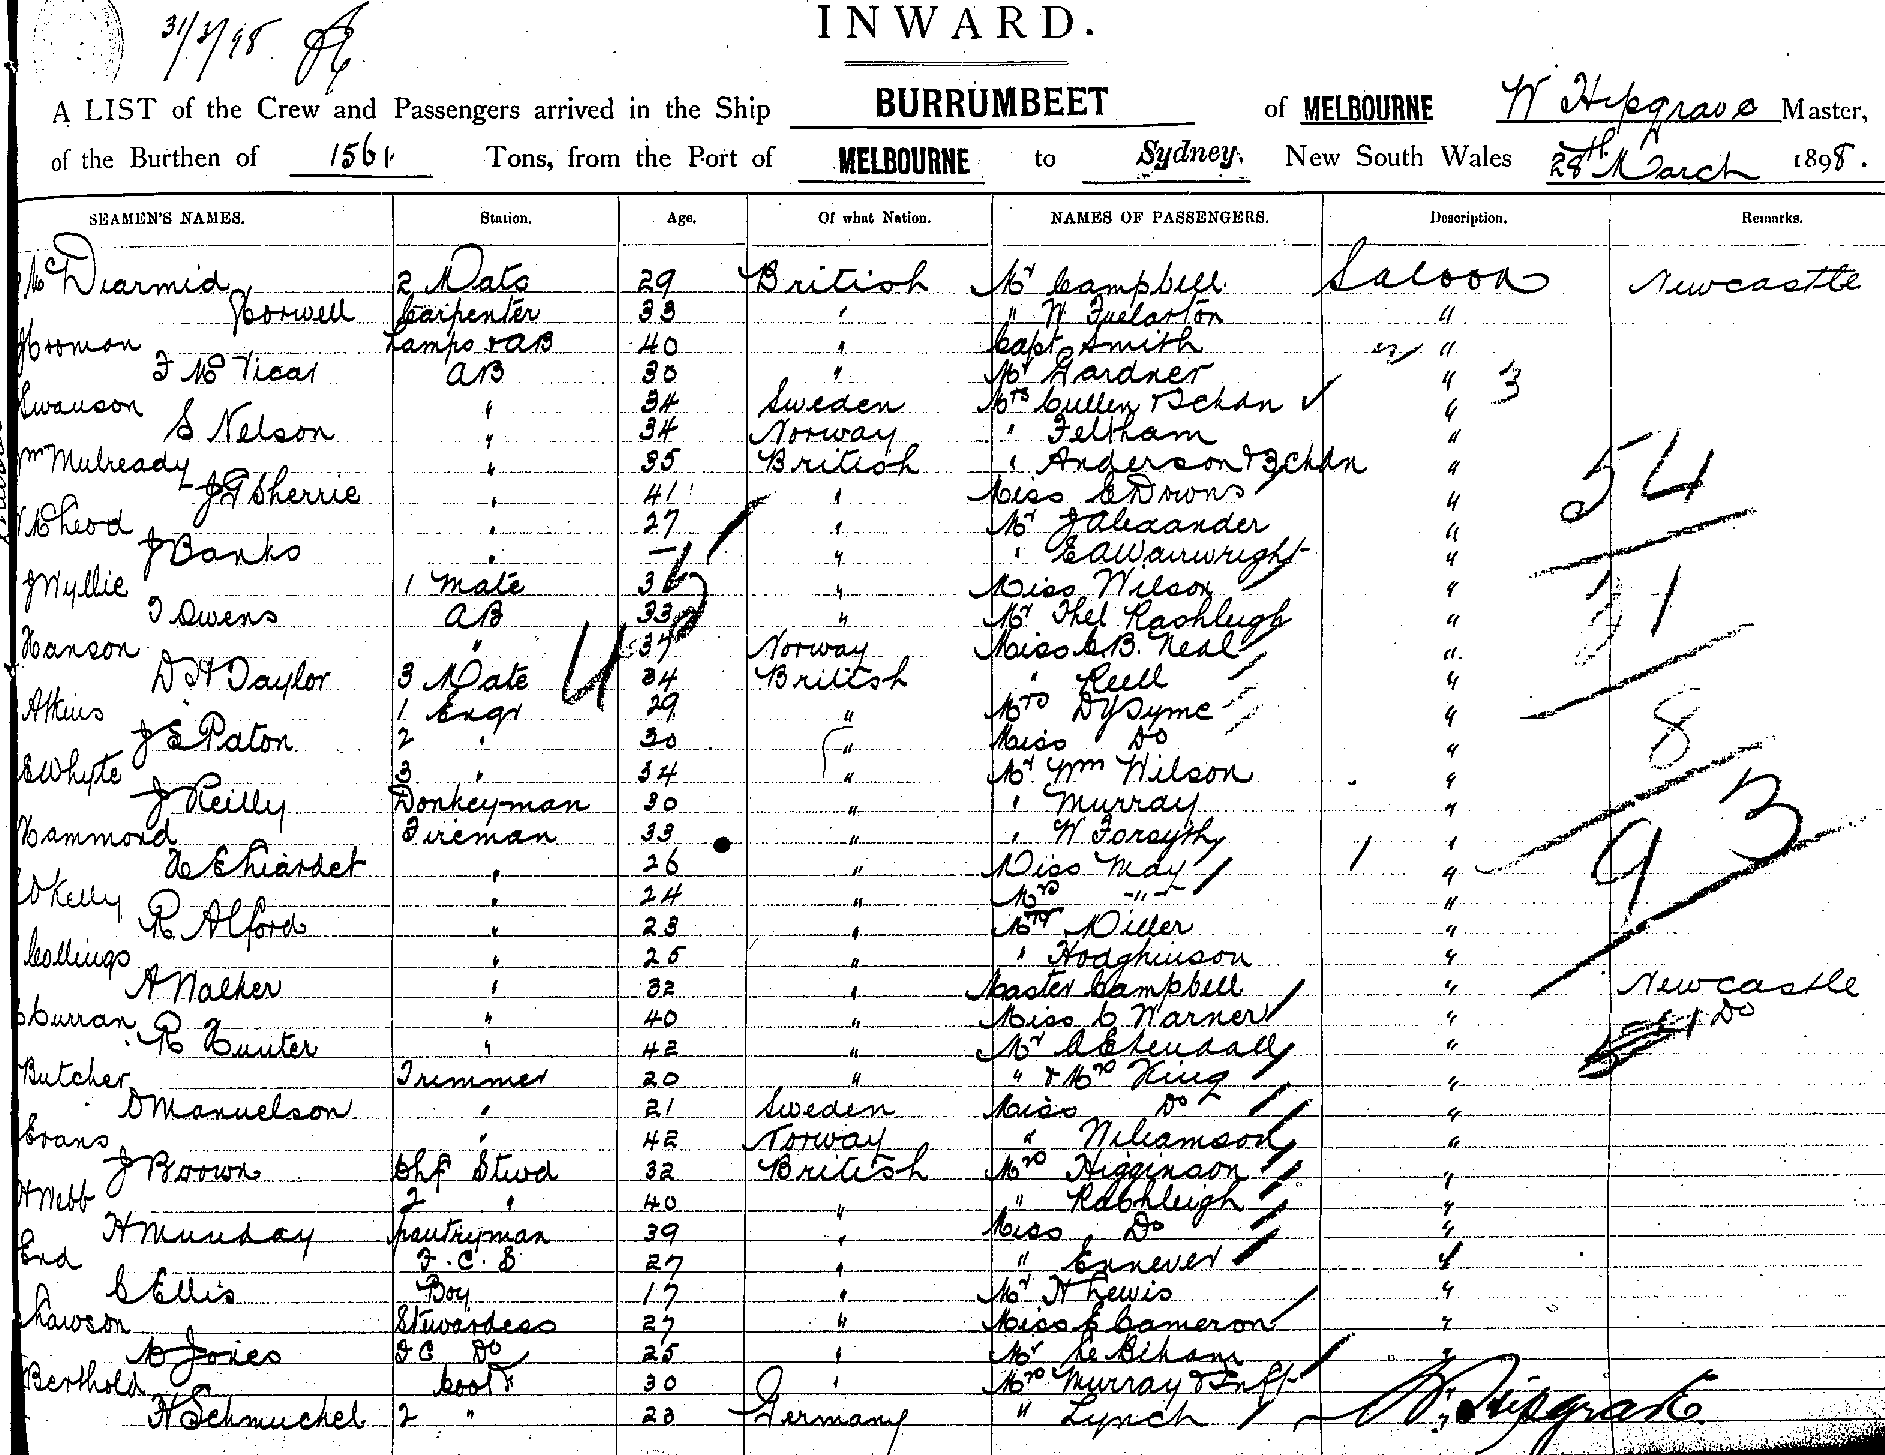 31/3/98
INWARD.
A LIST of the Crew and Passengers arrived in the Ship BURRUMBEET of MELBOURNE W Hipgrave Master,
of the Burthen of 1561 Tons, from the Port of MELBOURNE to Sydney, New South Wales 28th March 1898.
SEAMEN'S NAMES. Station. Age. Of what Nation. NAMES OF PASSENGERS. Description. Remarks.
McDiarmid 2 Mate 29 British Mr Campbell Saloon Newcastle
Horwell Carpenter 33 " " W Fuelarton "
Lamps & AB 40 " Capt Smith "
F McVicar AB 30 " Mr Gardner " 3
Swanson " 34 Sweden Mrs Cullen & 2 Chdn "
S Nelson " 34 Norway " Feltham "
Wm Mulready " 35 British " Anderson & 3 chdn " 54
J G Sherrie " 41 " Miss C Downs "
McLeod " 27 " Mr J Alexander "
J Banks " — " " E A Wainwright "
J Wyllie 1 Mate 36 " Miss Wilson " 31
T Owens AB 33 " Mr Thel Rashleigh "
Hanson " 37 Norway Miss C B. Neal "
D H Taylor 3 Mate 34 British " Kell "
Atkins 1 Engr 29 " Mrs D Y Syme " 8
J E Paton 2 " 30 " Miss Do "
E Whyte 3 " 34 " Mr Wm Wilson "
J Reilly Donkeyman 30 " " Murray "
Hammond Fireman 33 " " W Forsyth " 93
" 26 " Miss May "
Kelly " 24 " Mrs -"- "
R Alford " 23 " Mrs Miller "
Collings " 25 " " Hodgkinson "
A Walker " 32 " Master Campbell " Newcastle
Curran " 40 " Miss C Warner " Do
R Hunter " 42 " Mr "
Butcher Trimmer 20 " " & Mrs King "
D Manuelson " 21 Sweden Miss Do "
Evans " 42 Norway " Williamson "
J Brown Chf Stwd 32 British Mrs Higginson "
H Webb 2 " 40 " " Rashleigh "
H Munday pantryman 39 " Miss Do "
End F.C.S 27 " " Ennever "
C Ellis Boy 17 " Mr H Lewis "
Lawson Stewardess 27 " Miss E Cameron "
M Jones F C Do 25 " Mr "
Berthold Cook 30 " Mrs Murray & Inft
H Schmuckel 2 " 23 Germany " Lynch W. Hipgrave